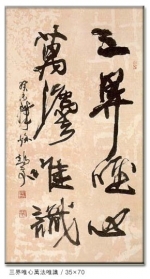 三界唯心
萬灋唯識
三界唯心萬法唯識 / 35×70